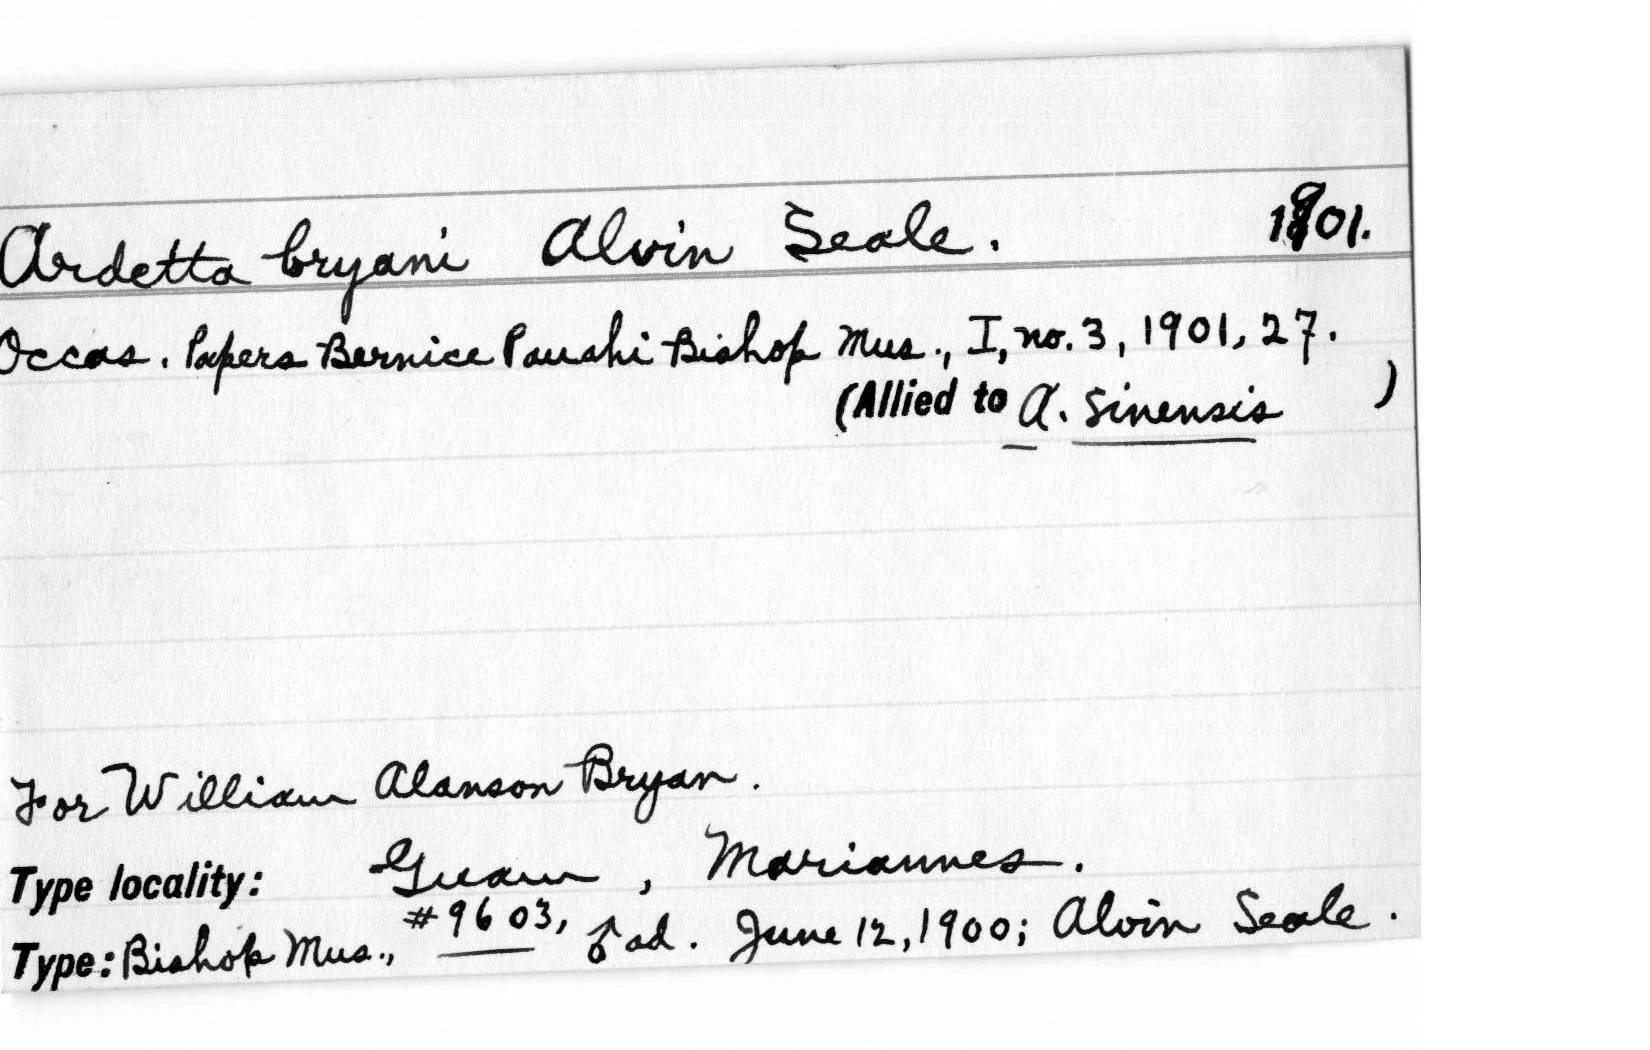 Ardetta bryani Alvin Seale. 1901.
Occas. Papers Bernice Pauahi Bishop Mus., I, no. 3, 1901, 27.
(Allied to A. sinensis )
For William Alanson Bryan.
Type locality: Guam, Mariannes.
Type: Bishop Mus., #9603, ♂ ad. June 12, 1900; Alvin Seale.